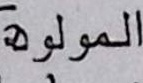 المولوة